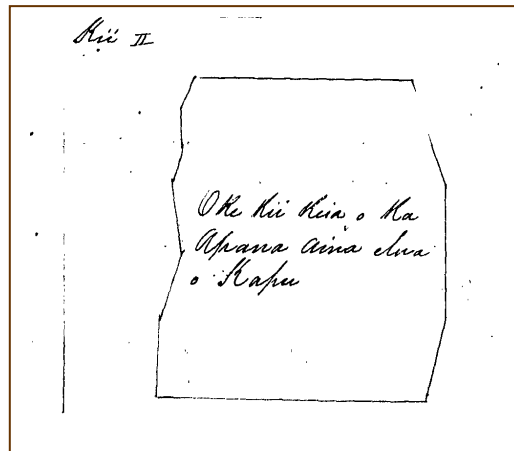 Kii II
O Ke Kii Keia o Ka
Apana Aina elua
o Kapu